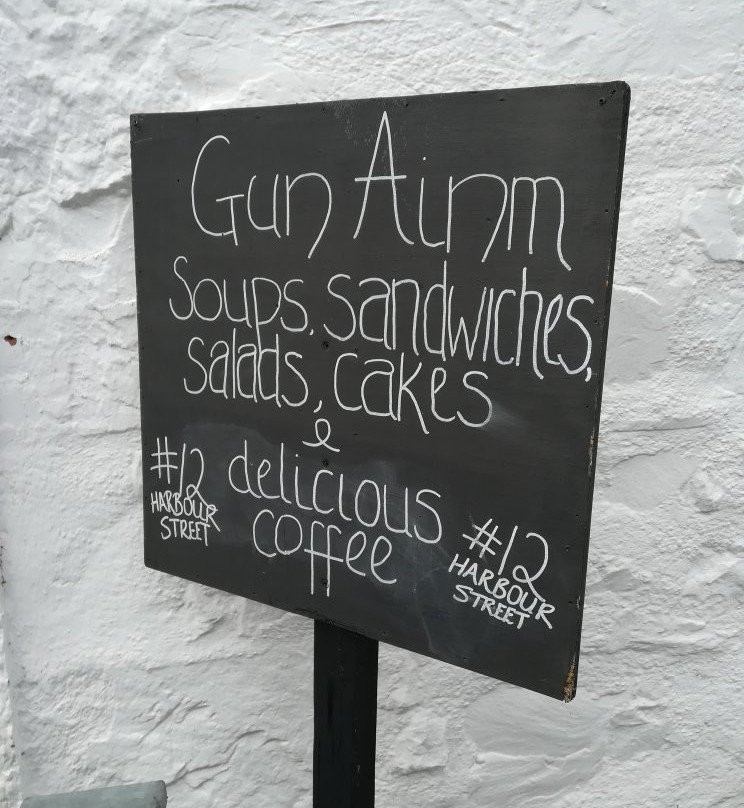 Gun Ainm
Soups, sandwiches,
salads, cakes
&
delicious
coffee
#12
HARBOUR
STREET
#12
HARBOUR
STREET